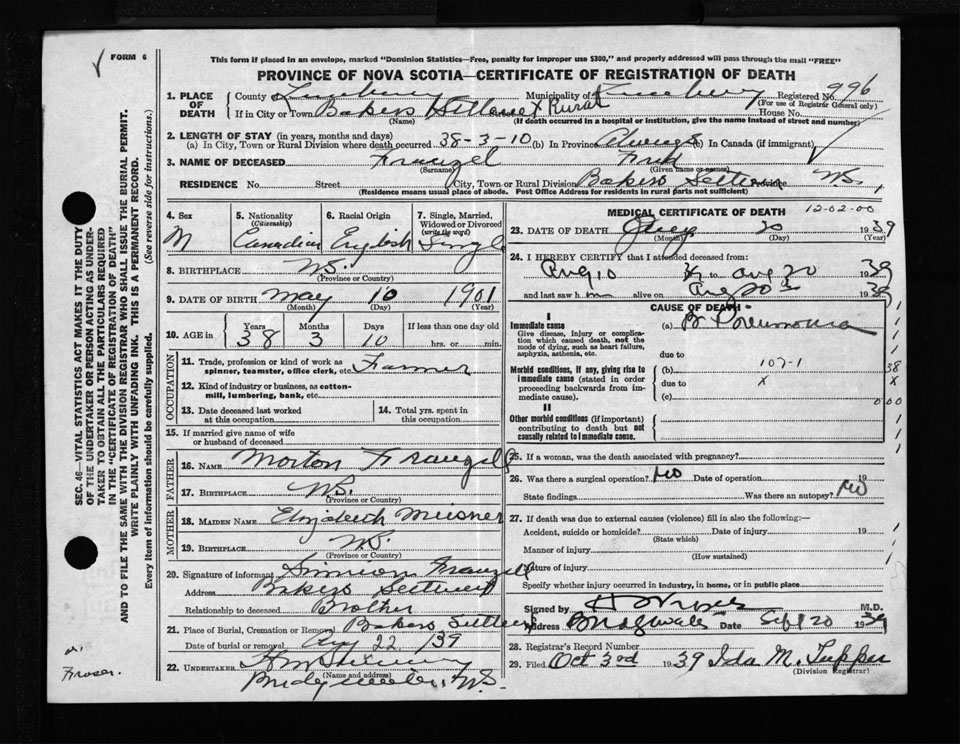 FORM 6
This form if placed in an envelope, marked "Dominion Statistics—Free, penalty for improper use $300," and properly addressed will pass through the mail "FREE"
PROVINCE OF NOVA SCOTIA—CERTIFICATE OF REGISTRATION OF DEATH
996
1. PLACE OF DEATH County Municipality of Registered No.
(For use of Registrar General only)
If in City or Town Bakers Rural House No.
(Name) (If death occurred in a hospital or institution, give the name instead of street and number)
2. LENGTH OF STAY (in years, months and days)
(a) In City, Town or Rural Division where death occurred 38-3-10 (b) In Province Always (c) In Canada (if immigrant)
3. NAME OF DECEASED
(Surname) (Given name or names)
RESIDENCE No. Street City, Town or Rural Division Bakers N.S.
(Residence means usual place of abode. Post Office Address for residents in rural parts not sufficient)
4. Sex M
5. Nationality (Citizenship) Canadian
6. Racial Origin English
7. Single, Married, Widowed or Divorced (write the word) Single
8. BIRTHPLACE N.S.
(Province or Country)
9. DATE OF BIRTH May 10 1901
(Month) (Day) (Year)
10. AGE in Years Months Days If less than one day old
38 3 10 hrs. or min.
OCCUPATION
11. Trade, profession or kind of work as spinner, teamster, office clerk, etc. Farmer
12. Kind of industry or business, as cotton-mill, lumbering, bank, etc.
13. Date deceased last worked at this occupation
14. Total yrs. spent in this occupation
15. If married give name of wife or husband of deceased
FATHER
16. NAME Morton
17. BIRTHPLACE N.S.
(Province or Country)
MOTHER
18. MAIDEN NAME Elizabeth Meisner
19. BIRTHPLACE N.S.
(Province or Country)
20. Signature of informant
Address Bakers
Relationship to deceased Brother
21. Place of Burial, Cremation or Removal Bakers
Date of burial or removal Aug 22/39
22. UNDERTAKER
(Name and address)
Bridgewater, N.S.
MEDICAL CERTIFICATE OF DEATH 12-02-00
23. DATE OF DEATH 20 1939
(Month) (Day) (Year)
24. I HEREBY CERTIFY that I attended deceased from:
Aug 10 to Aug 20 1939
and last saw h m alive on Aug 20 1939
CAUSE OF DEATH
I
Immediate cause (a) Br Pneumonia
Give disease, injury or complication which caused death, not the mode of dying, such as heart failure, asphyxia, asthenia, etc.
due to
Morbid conditions, if any, giving rise to immediate cause (stated in order proceeding backwards from immediate cause)
(b) 107-1
due to x
(c)
38
x
000
II
Other morbid conditions (if important) contributing to death but not causally related to Immediate cause.
25. If a woman, was the death associated with pregnancy?
26. Was there a surgical operation? No Date of operation 19
State findings Was there an autopsy? No
27. If death was due to external causes (violence) fill in also the following:—
Accident, suicide or homicide? Date of injury 19
(State which)
Manner of injury
(How sustained)
Nature of injury
Specify whether injury occurred in industry, in home, or in public place
Signed by M.D.
Address Bridgewater Date Sept 20 1939
28. Registrar's Record Number
29. Filed Oct 3rd 1939 Ida M. Tupper
(Division Registrar)
SEC. 46—VITAL STATISTICS ACT MAKES IT THE DUTY
OF THE UNDERTAKER OR PERSON ACTING AS UNDER-
TAKER TO OBTAIN ALL THE PARTICULARS REQUIRED
IN THE "CERTIFICATE OF REGISTRATION OF DEATH"
AND TO FILE THE SAME WITH THE DIVISION REGISTRAR WHO SHALL ISSUE THE BURIAL PERMIT.
WRITE PLAINLY WITH UNFADING INK. THIS IS A PERMANENT RECORD.
Every item of information should be carefully supplied. (See reverse side for instructions.)